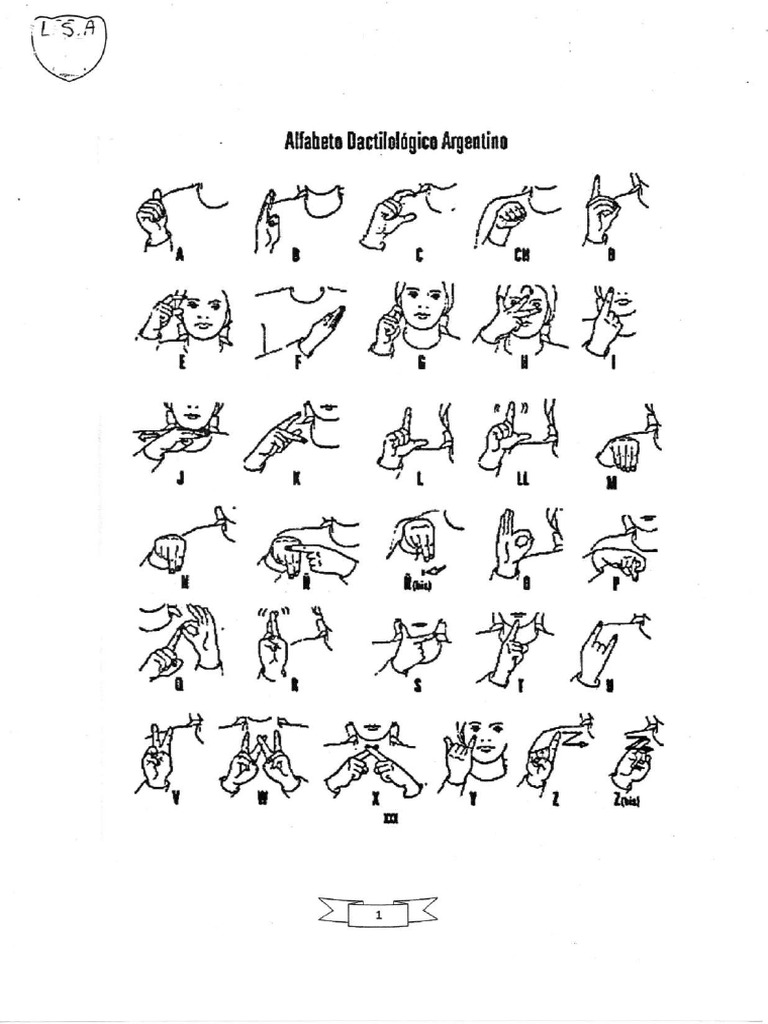 L S A
Alfabeto Dactilológico Argentino
A B C CH D
E F G H I
J K L LL M
N Ñ Ñ(bis) O P
Q R S T U
V W X Y Z Z(bis)
XXX
1